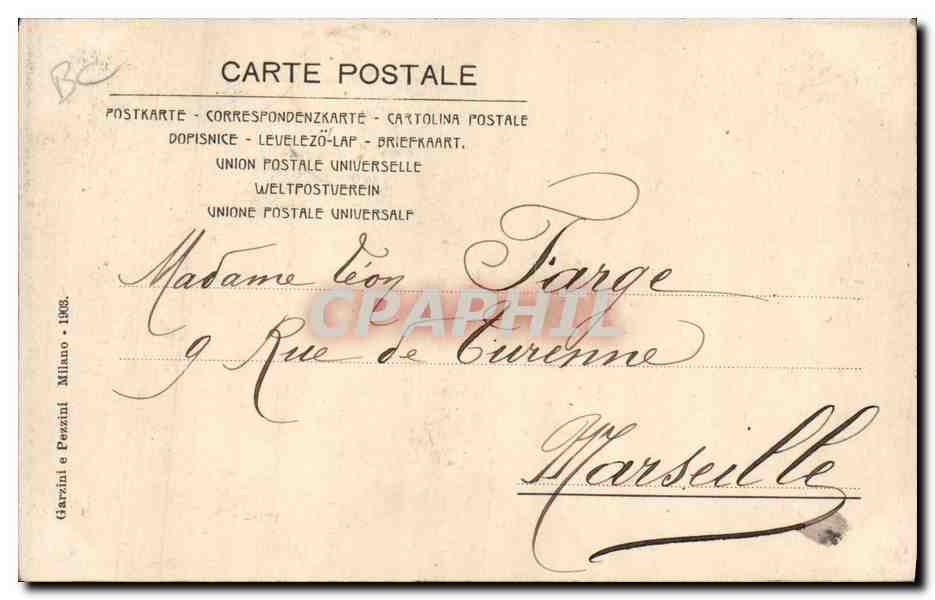 BC
CARTE POSTALE
POSTKARTE - CORRESPONDENZKARTE - CARTOLINA POSTALE
DOPISNICE - LEVELEZÖ-LAP - BRIEFKAART.
UNION POSTALE UNIVERSELLE
WELTPOSTVEREIN
UNIONE POSTALE UNIVERSALE
Madame Léon Farge
CPAPHIL
9 Rue de Turenne
Marseille
Garzini e Pezzini Milano - 1903.